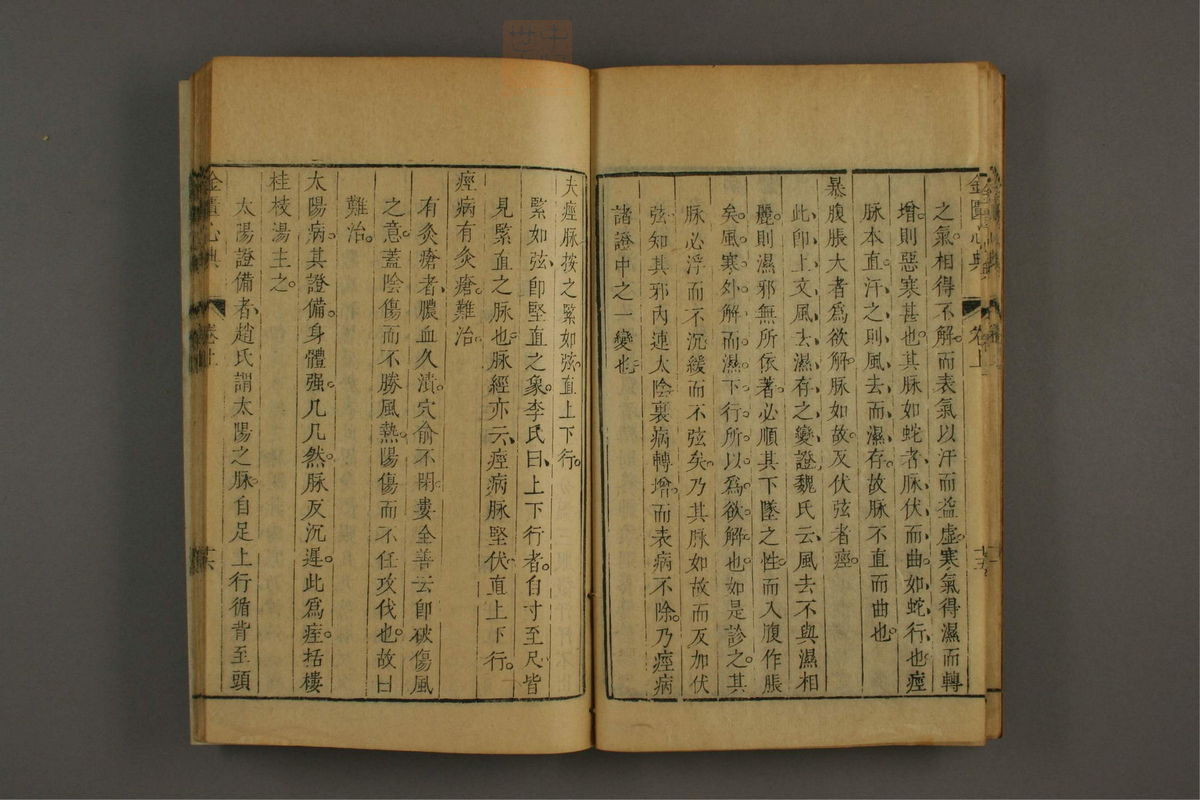 金匱心典 卷上 十五
之氣相得不解而表氣以汗而益虛寒氣得濕而轉
增則惡寒甚也其脉如蛇者脉伏而曲如蛇行也痙
脉本直汗之則風去而濕存故脉不直而曲也
暴腹脹大者爲欲解脉如故反伏弦者痙
此卽上文風去濕存之變證魏氏云風去不與濕相
麗則濕邪無所依著必順其下墜之性而入腹作脹
矣風寒外解而濕下行所以爲欲解也如是診之其
脉必浮而不沉緩而不弦矣乃其脉如故而反加伏
弦知其邪內連太陰裏病轉增而表病不除乃痙病
諸證中之一變也
夫痙脉按之緊如弦直上下行
緊如弦卽堅直之象李氏曰上下行者自寸至尺皆
見緊直之脉也脉經亦云痙病脉堅伏直上下行
痙病有灸瘡難治
有灸瘡者膿血久潰穴俞不閉婁全善云卽破傷風
之意蓋陰傷而不勝風熱陽傷而不任攻伐也故曰
難治
太陽病其證備身體强几几然脉反沉遲此爲痙栝樓
桂枝湯主之
太陽證備者趙氏謂太陽之脉自足上行循背至頭
金匱心典 卷上 十六